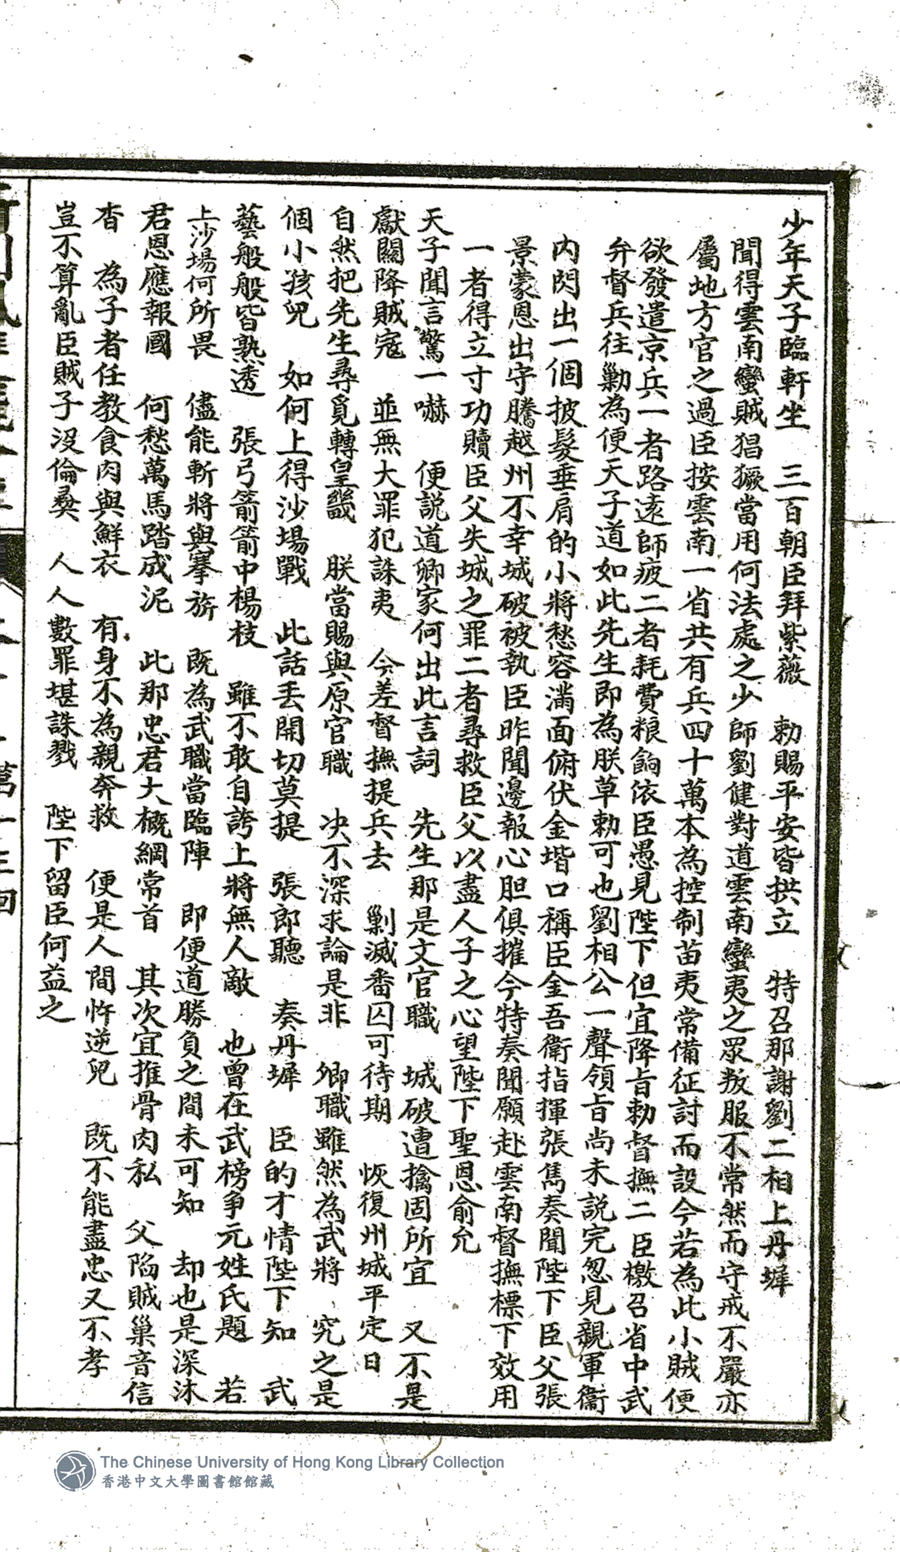 少年天子臨軒坐　三百朝臣拜紫薇　勅賜平安皆拱立　特召那謝劉二相上丹墀
聞得雲南蠻賊猖獗當用何法處之少師劉健對道雲南蠻夷之眾叛服不常然而守戒不嚴亦
屬地方官之過臣按雲南一省共有兵四十萬本為控制苗夷常備征討而設今若為此小賊便
欲發遣京兵一者路遠師疲二者耗費粮餉依臣愚見陛下但宜降旨勅督撫二臣檄召省中武
弁督兵往勦為便天子道如此先生即為朕草勅可也劉相公一聲領旨尚未說完忽見親軍衞
內閃出一個披髮垂肩的小將愁容滿面俯伏金堦口稱臣金吾衛指揮張雋奏聞陛下臣父張
景蒙恩出守騰越州不幸城破被執臣昨聞邊報心胆俱摧今特奏聞願赴雲南督撫標下效用
一者得立寸功贖臣父失城之罪二者尋救臣父以盡人子之心望陛下聖恩俞允
天子聞言驚一嚇　便説道卿家何出此言詞　先生那是文官職　城破遭擒固所宜　又不是
獻關降賊寇　並無大罪犯誅夷　今差督撫提兵去　剿滅番囚可待期　恢復州城平定日
自然把先生尋覓轉皇畿　朕當賜與原官職　决不深求論是非　卿職雖然為武將　究之是
個小孩兒　如何上得沙場戰　此話丟開切莫提　張郎聽　奏丹墀　臣的才情陛下知　武
藝般般皆熟透　張弓箭箭中楊枝　雖不敢自誇上將無人敵　也曾在武榜爭元姓氏題　若
上沙場何所畏　儘能斬將與搴旂　既為武職當臨陣　即便道勝負之間未可知　却也是深沐
君恩應報國　何愁萬馬踏成泥　此那忠君大概綱常首　其次宜推骨肉私　父陷賊巢音信
杳　為子者任教食肉與鮮衣　有身不為親奔救　便是人間忤逆兒　既不能盡忠又不孝
豈不算亂臣賊子沒倫彝　人人數罪堪誅戮　陛下留臣何益之
The Chinese University of Hong Kong Library Collection
香港中文大學圖書館館藏